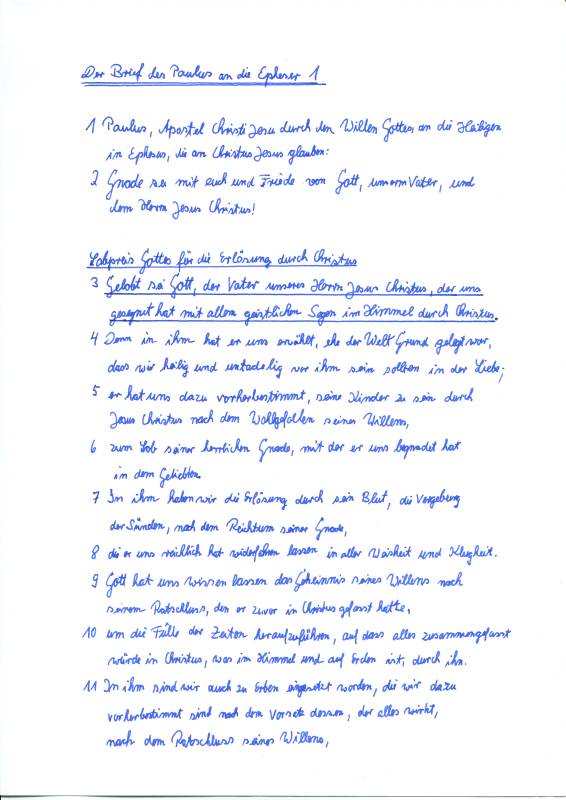 Der Brief des Paulus an die Epheser 1
1 Paulus, Apostel Christi Jesu durch den Willen Gottes an die Heiligen
in Ephesus, die an Christus Jesus glauben:
2 Gnade sei mit euch und Friede von Gott, unserm Vater, und
dem Herrn Jesus Christus!
Lobpreis Gottes für die Erlösung durch Christus
3 Gelobt sei Gott, der Vater unseres Herrn Jesus Christus, der uns
gesegnet hat mit allem geistlichen Segen im Himmel durch Christus.
4 Denn in ihm hat er uns erwählt, ehe der Welt Grund gelegt war,
dass wir heilig und untadelig vor ihm sein sollten in der Liebe;
5 er hat uns dazu vorherbestimmt, seine Kinder zu sein durch
Jesus Christus nach dem Wohlgefallen seines Willens,
6 zum Lob seiner herrlichen Gnade, mit der er uns begnadet hat
in dem Geliebten.
7 In ihm haben wir die Erlösung durch sein Blut, die Vergebung
der Sünden, nach dem Reichtum seiner Gnade,
8 die er uns reichlich hat widerfahren lassen in aller Weisheit und Klugheit.
9 Gott hat uns wissen lassen das Geheimnis seines Willens nach
seinem Ratschluss, den er zuvor in Christus gefasst hatte,
10 um die Fülle der Zeiten heraufzuführen, auf dass alles zusammengefasst
würde in Christus, was im Himmel und auf Erden ist, durch ihn.
11 In ihm sind wir auch zu Erben eingesetzt worden, die wir dazu
vorherbestimmt sind nach dem Vorsatz dessen, der alles wirkt,
nach dem Ratschluss seines Willens,